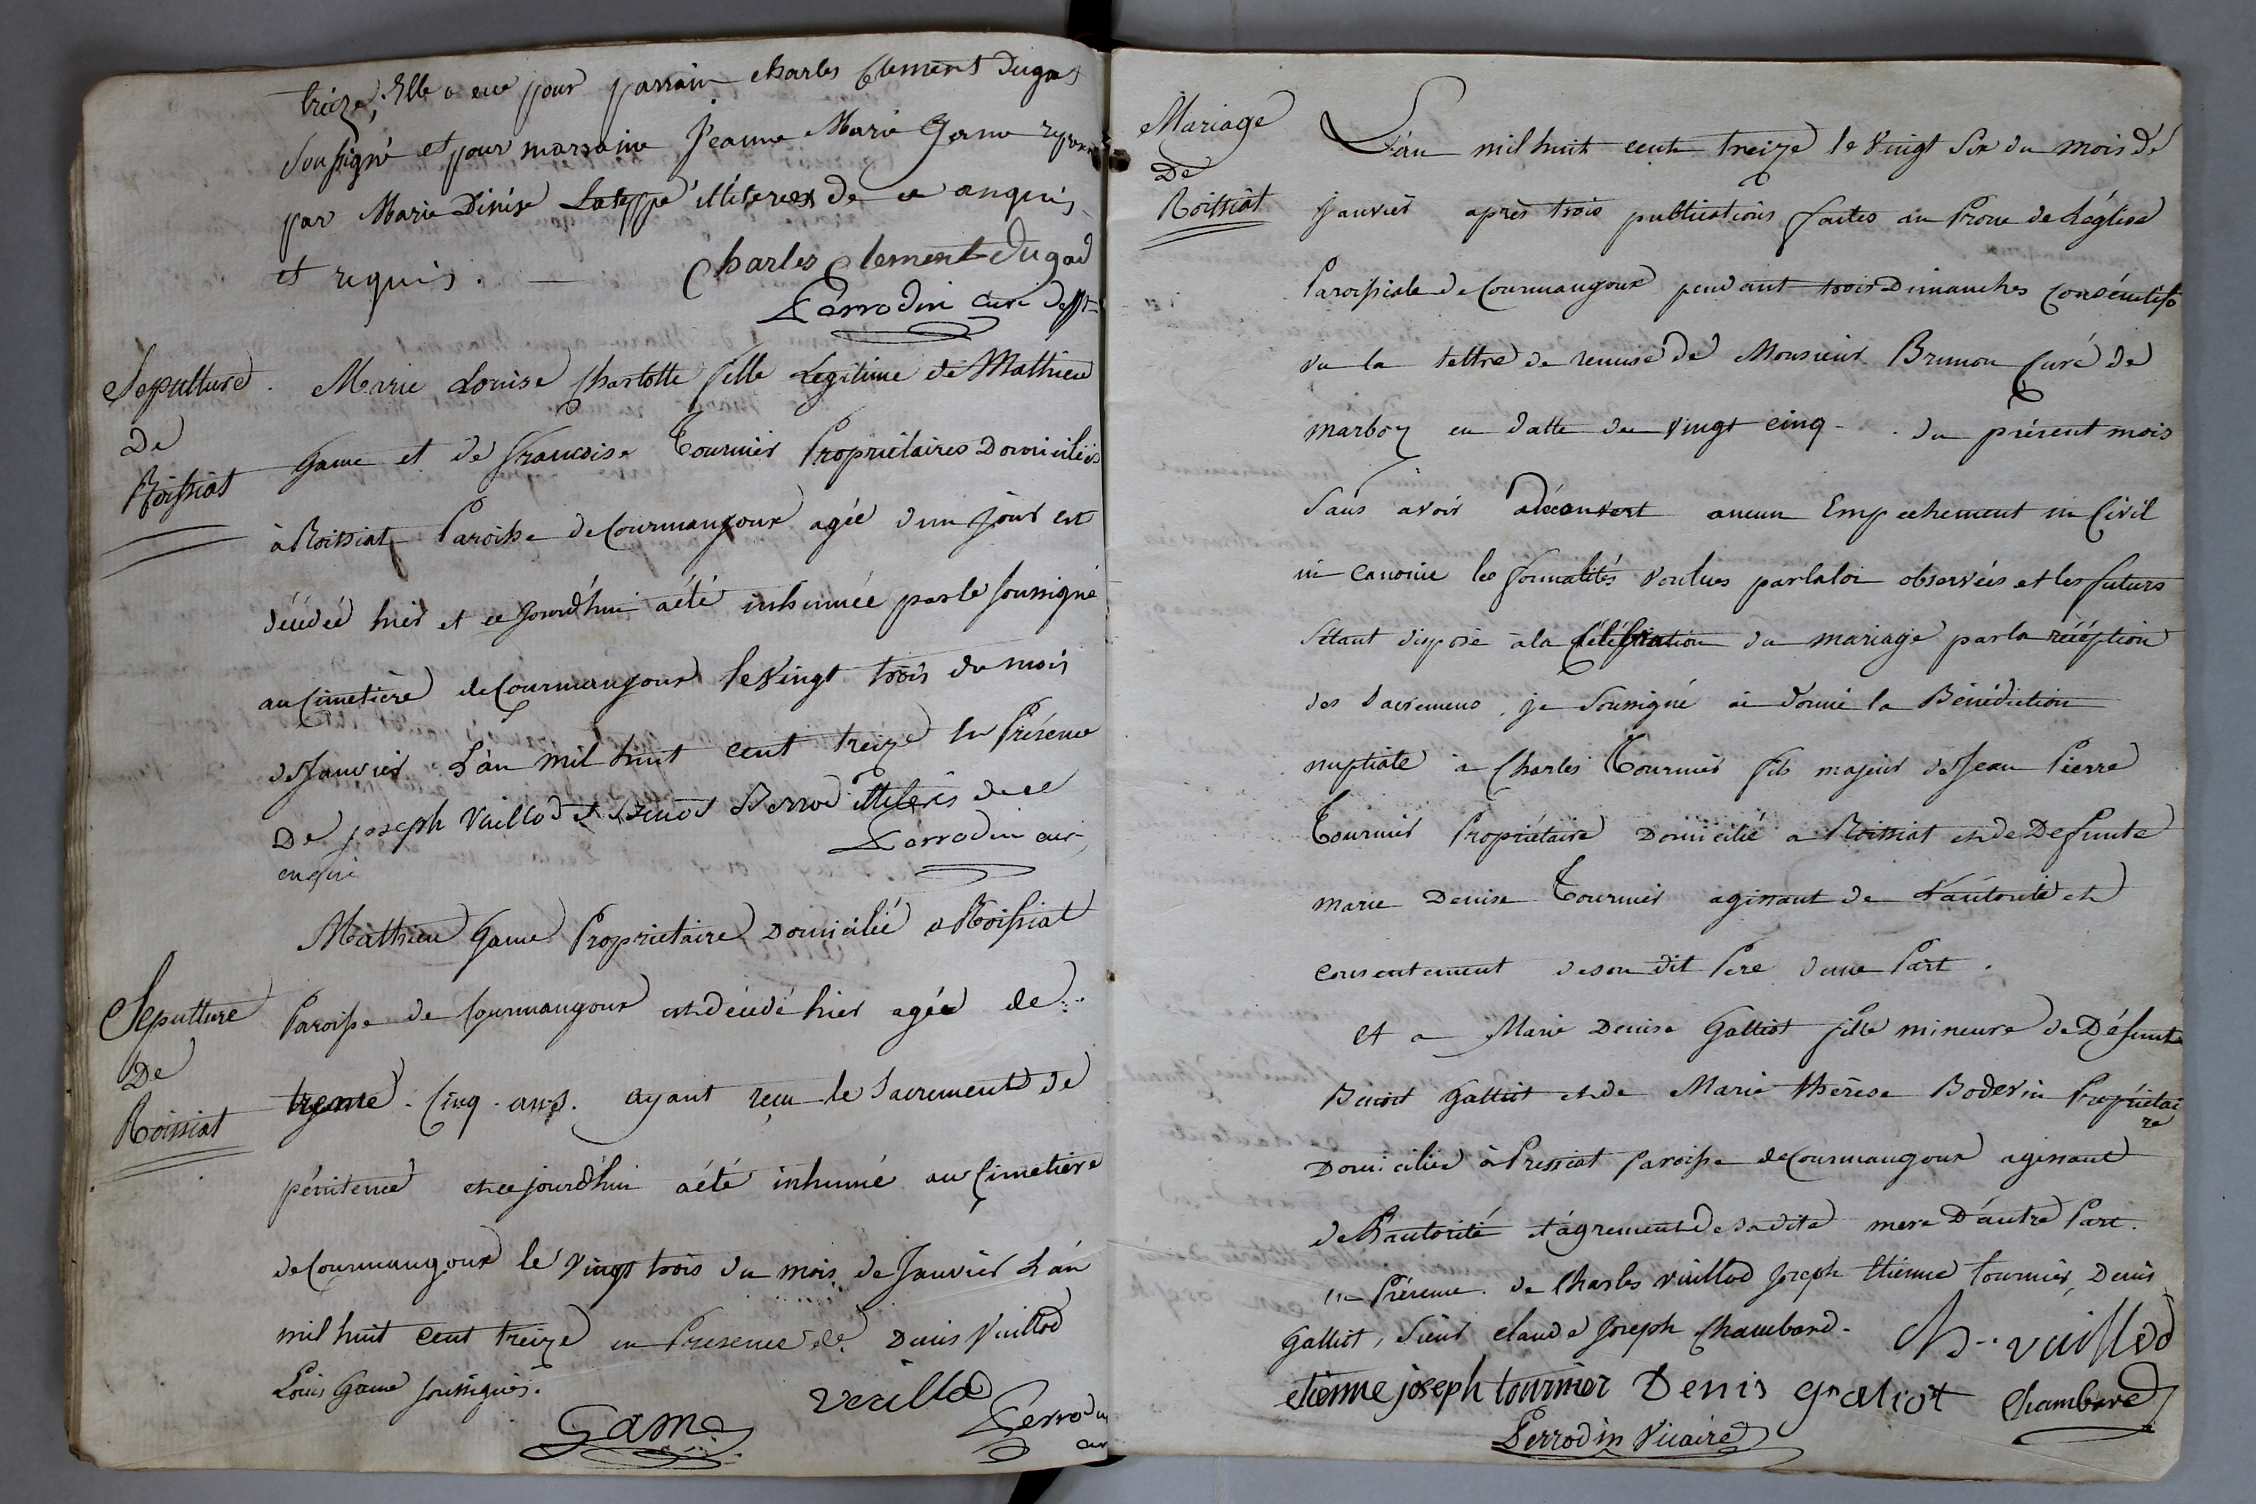 treize, Elle a eue pour parrain charles Clement Dugad
Soussigné et pour marraine Jeanne Marie Gerne
par Marie Dinise illiteres de ce enquis
et requis.
Charles Clement Dugad
Perrodin Curé
Sepulture
De
Roissiat
Marie Louise Charlotte fille Legitime de Mathieu
Game et de francoise Tournier Propriétaires Domiciliés
à Roissiat Paroisse de Courmangoux agée d'un jour est
décédée hier et ce jourd'hui a été inhumée par le soussigné
au Cimetière de Courmangoux le Vingt trois du mois
de Janvier L'an mil huit cent treize En Présence
De joseph Vuillod et Benoit Berrod illiterés de ce
enquis
Perrodin curé
Sepulture
De
Roissiat
Mathieu Game Proprietaire Domicilié a Roissiat
Paroisse de Courmangoux est décédé hier agée de
trente Cinq ans. ayant reçu le Sacrement de
pénitence et ce jourd'hui a été inhumé au Cimetière
de Courmangoux le Vingt trois du mois de Janvier L'an
mil huit cent treize en Presence de Denis Vuillod
Louis Game soussignés.
Game
vuillod
Perrodin
curé
Mariage
De
Roissiat
L'an mil huit cent treize le Vingt Six du mois de
janvier après trois publications faites au Prone de L'église
Paroissiale de Courmangoux pendant trois Dimanches Consécutifs
vu la lettre de remise de Monsieur Brunon Curé de
marboz en datte du Vingt cinq du présent mois
Sans avoir découvert aucun Empechement ni Civil
ni canonie les formalités voulues par la loi observées et les futurs
s'étant disposé à la Célébration du mariage par la réception
des Sacremens, je Soussigné ai donné la Bénédiction
nuptiale à Charles Tournier fils majeur de Jean Pierre
Tournier Propriétaire Domicilié a Roissiat et de Defunte
marie Denise Tournier agissant de L'autorité et
consentement de son dit Pere d'une Part.
Et a Marie Denise Galliot fille mineure de Défunt
Benoit Galliot et de Marie thérèse Boderin Propriétai
re
Domiciliée à Pressiat Paroisse de Courmangoux agissant
de L'autorité et agrement de sa dite mere D'autre Part.
en Présence de Charles Vuillod Joseph Etienne Tournier, Denis
Galliot, Sieur Claude Joseph Chambard.
Ch. vuillod
etienne joseph tournier Denis galiot Chambard
Perrodin Vicaire